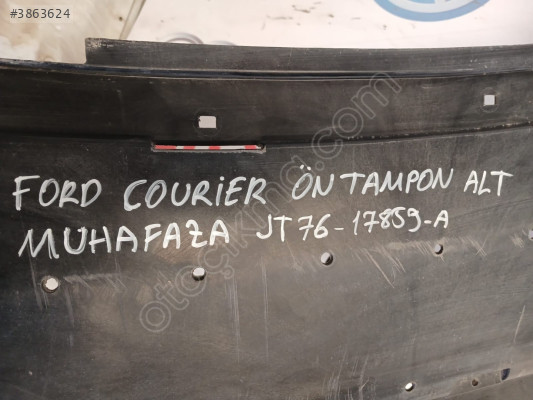 #3863624
FORD COURiER ÖN TAMPON ALT
MUHAFAZA JT76-17859-A
otoçıking.com